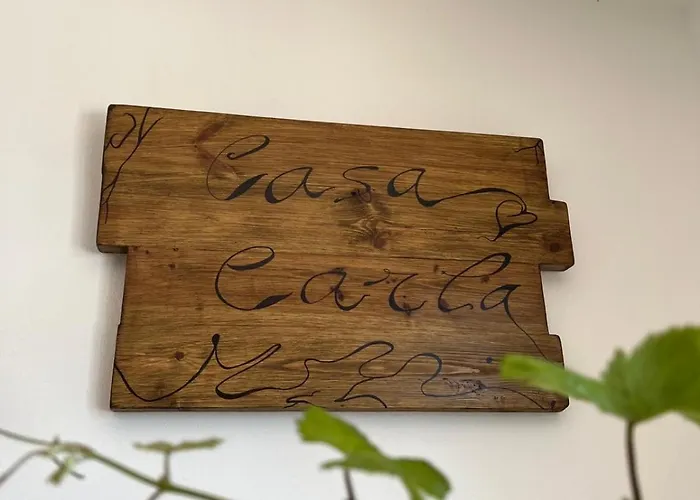 Casa
Carla